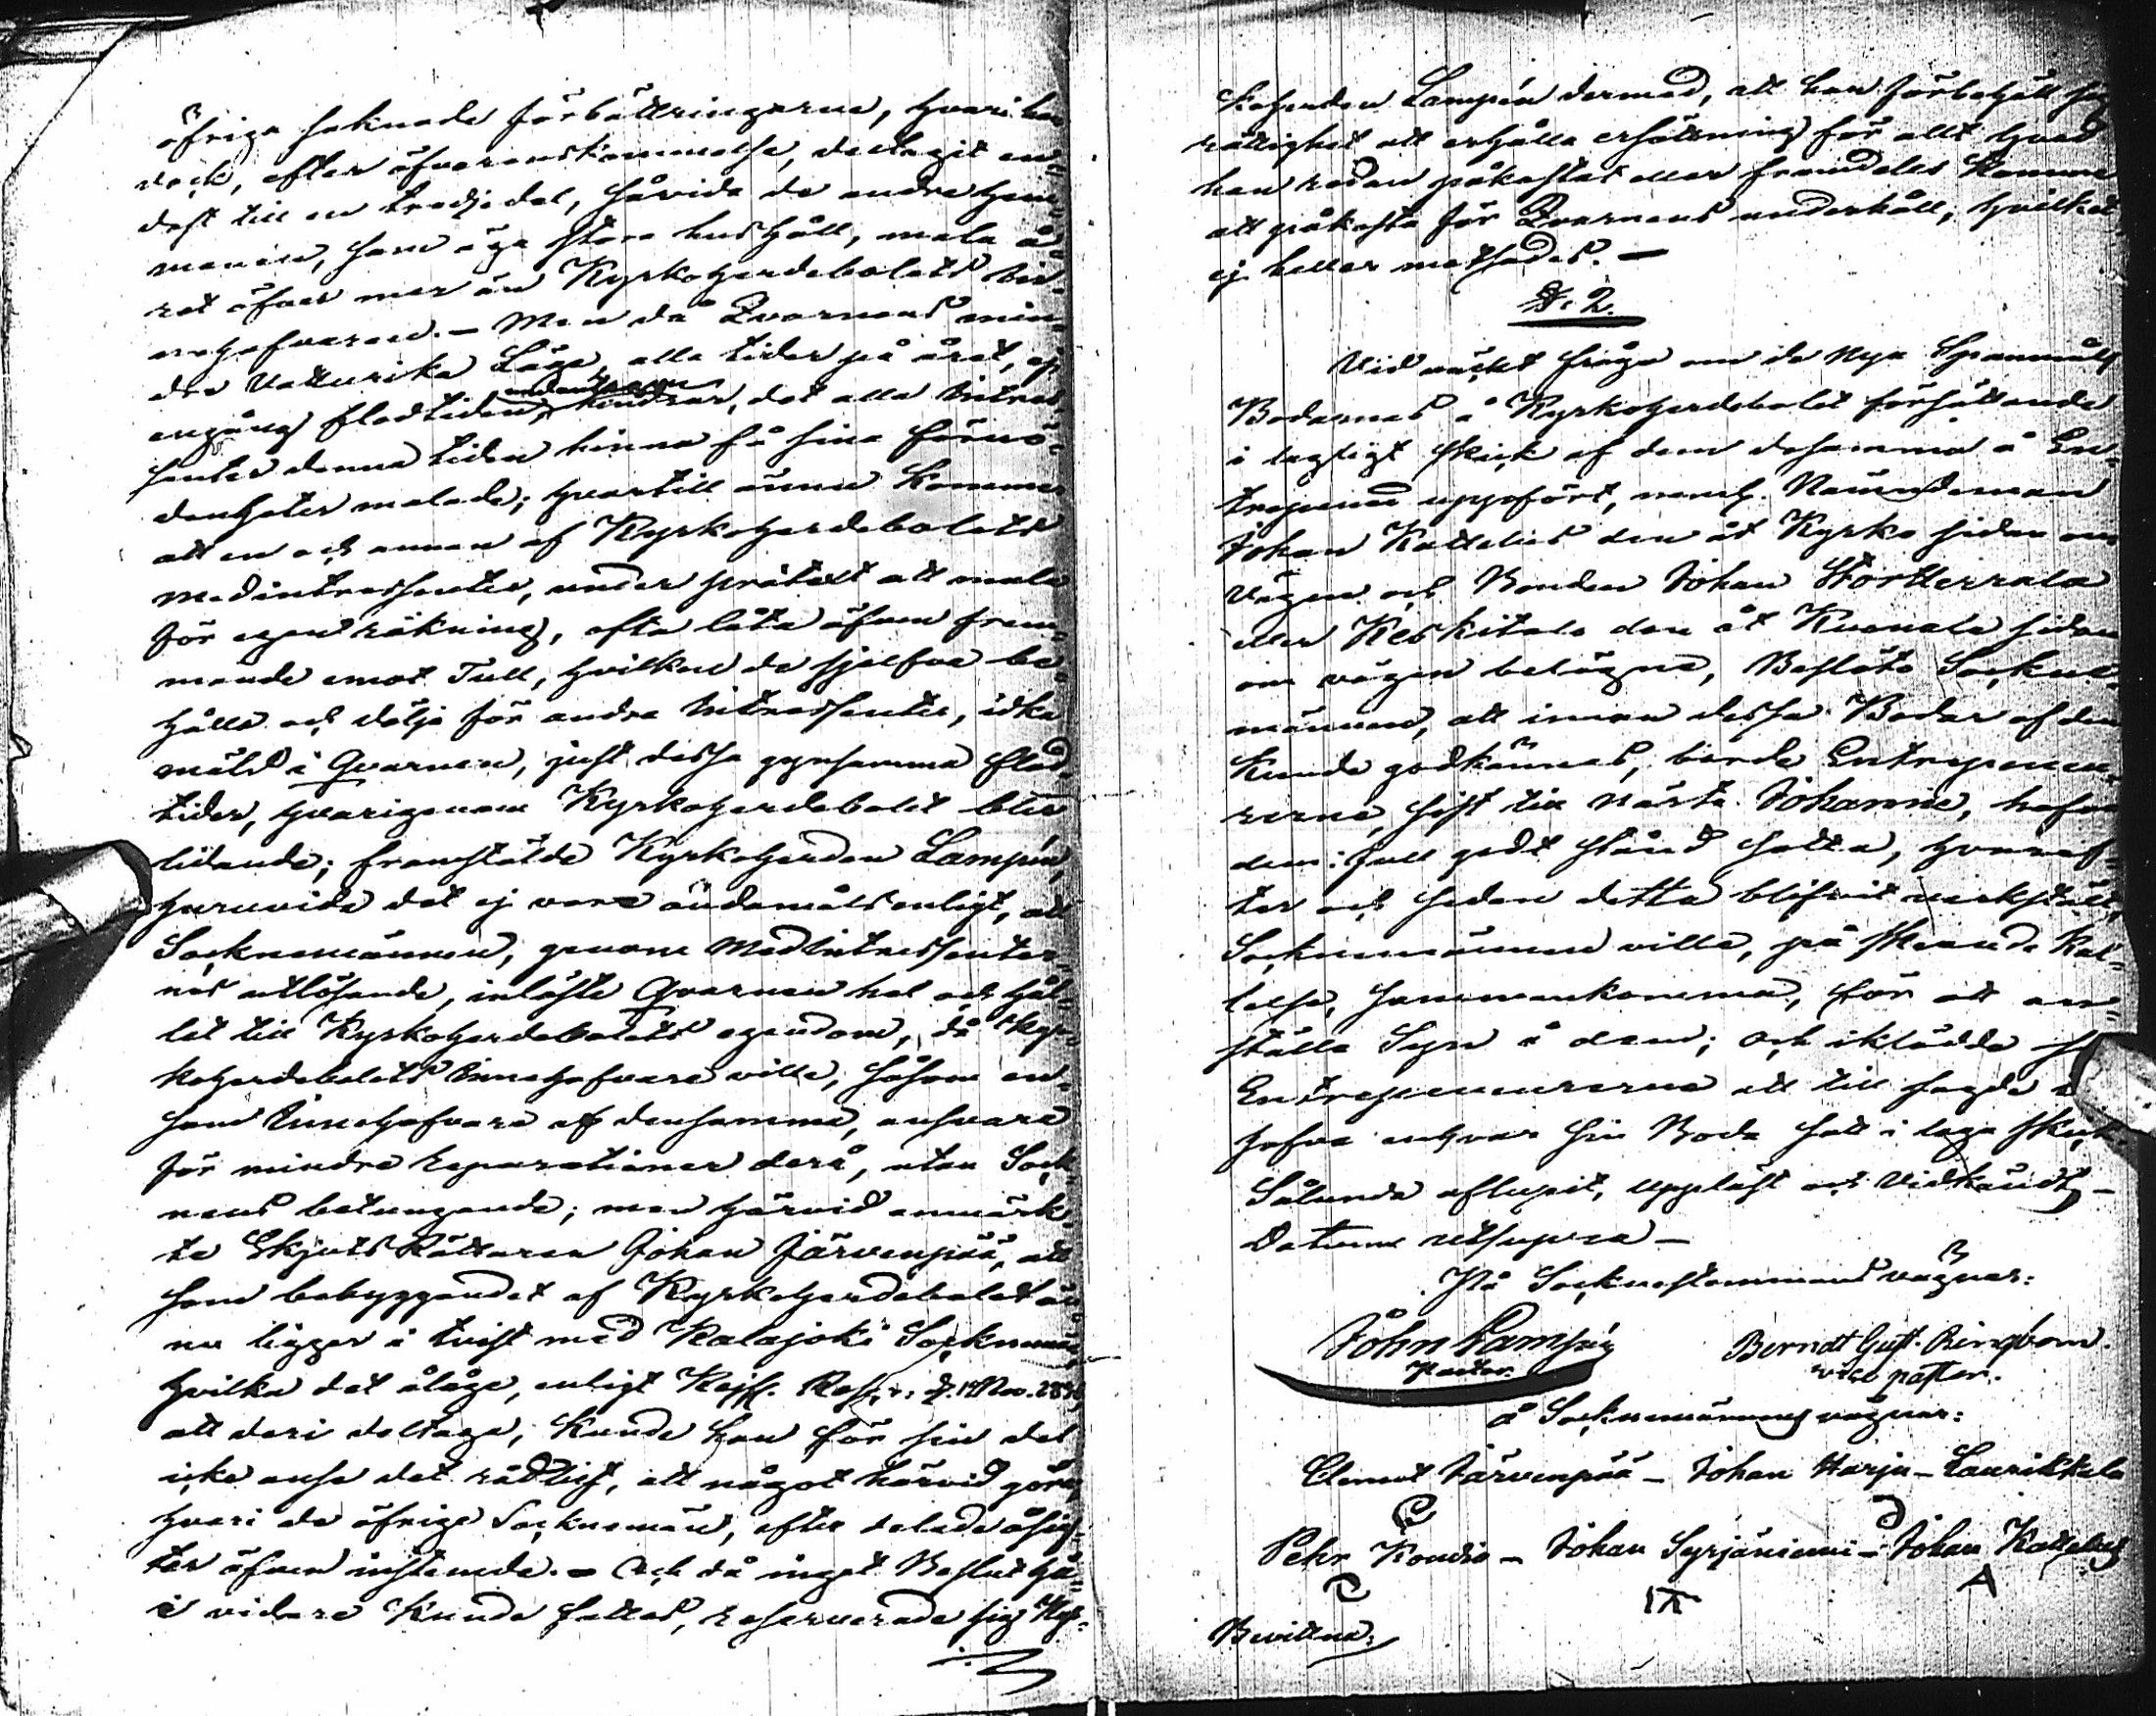 öfriga saknade förbättringarne, hvari han
dock, efter öfverenskommelse, deltagit en-
dast till en tredjedel, såvida de andra hem-
manen, som äga stora hushåll, mala å-
ret öfver mer än Kyrkoherdebolets in-
nehafvaren. — Men då Qvarnens min-
dre Vattenrika Läge, alla tider på året, ej
engång flodtiden, undantagen hindrar, det alla Intres-
senter denna tiden hinna få sine förnö-
denheter malade; hvartill ännu kommer
att en och annan af Kyrkoherdebolets
medintressenter, under prätext att mala
för egen räkning, ofta låta äfven främ-
mande emot Tull, hvilken de sjelfve be-
hålla och dölja för andra Intressenter, idka
mäld i Qvarnen, just dessa gynsamma flod-
tider, hvarigenom Kyrkoherdebolet blir
lidande; framstälde Kyrkoherden Lampén,
huruvida det ej vore ändamålsenligt, att
Socknemännen, genom Medintressenter-
nes utlösande, inlöste Qvarnen hel och hål-
let till Kyrkoherdebolets egendom, då Kyr-
koherdebolets Innehafvare ville, såsom en-
sam Innehafvare af densamma, ansvara
för mindre reparationer derå, utan Sock-
nens betungande; men härvid anmärk-
te Skjutsrättaren Johan Järvenpää, att
som bebyggandet af Kyrkoherdebolet än-
nu ligger i tvist med Kalajoki Socknemän,
hvilka det ålåge, enligt Kejs. Res. d. 14 Nov.
att deri deltaga, kunde han för sin del
icke anse det rådligt, att något härvid göra,
hvari de öfrige Socknemän, efter delade åsig-
ter äfven instemde. — Och då inget Beslut hä-
ri vidare kunde fattas, reserverade sig Kyr-
koherden Lampén dermed, att han förbehöll sig
rättighet att erhålla ersättning för allt hvad
han redan påkostat eller framdeles komme
att påkosta för Qvarnens underhåll, hvilket
ej heller motsades. —
§. 2.
Vid väckt fråga om de nya Spannmåls
Bodarnes å Kyrkoherdebolet försättande
i lagligt skick af dem desamma å En-
treprenad uppfört, neml. Nämndeman
Johan Kattelus den åt Kyrko sidan om
vägen och Bonden Johan Stortterrala
eller Keskitalo den åt Kuonala sidan
om vägen belägne, Beslöto Socken-
männen, att innan dessa Bodar af dem
kunde godkännas, borde Entreprenu-
rerne, sist till nästa Johanne, hafva
dem i full godt stånd satta, hvaref-
ter och sedan detta blifvit verkstält,
Socknemännen ville, på skeende Kal-
lelse, sammankomma, för att an-
ställa Syn å dem; och iklädde sig
Entrepreneurerne att till sagde
hafva enhvar sin Boda satt i laga skick.
Sålunda aflupit, uppläst och Vidkändt —
Datum utsupra —
På Socknestammans vägnar:
John Lampén
Pastor.
Berndt Gust. Ringbom.
vice pastor.
å Socknemännens vägnar:
Clemet Järvenpää — Johan Harju — Laurikkala
Pehr Kondio — Johan Syrjäniemi — Johan Kattelus
Bevittna: